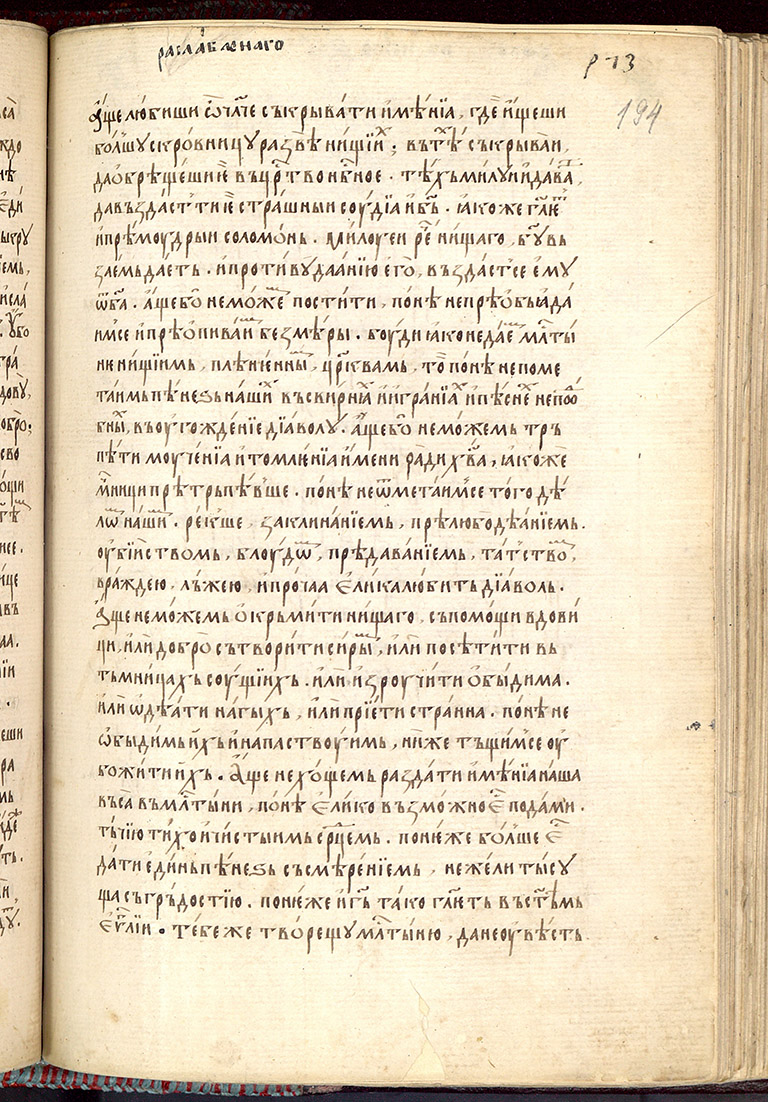 раславленаго
р҃ч҃г
194
а҆́ще лю́биши ѿⷱ҇а́че съкрыва́ти и҆мѣ́нїа, гдѐ и҆́щеши
бо́лшꙋ скро́вницꙋ ра́звѣ ни́щїиⷯ; въ тѣⷯ съкрыва́и,
да ѡ҆брѣ́щеши иⷯ въ црⷭ҇твои нбⷭ҇ное. тѣ́хъ ми́лꙋи и҆ дава́и,
да въздаⷭ҇тъ ти иⷯ стра́шныи соудїа̀ и҆ бг҃ъ. ꙗ҆коже гл҃еⷮ
и҆ прѣмоу́дрыи соломо́нь. ми́лоуеи реⷱ҇ ни́щаго, бг҃ꙋ вь
зае́мь дае́ть. и҆ проти́вꙋ даа́нїю е҆го̀, възда́стсе е҆мꙋ̀
ѿ бг҃а. а҆́ще бо не мо́жеⷨ пости́ти, понѣ̀ не прѣѡ҆бьꙗ҆да́
и҆мсе и҆ прѣѡ҆пива́иⷨ без мѣ́ры. боу́ди ꙗ҆ко не дае́ⷨ млⷭ҇ты
ни ни́щїимь, плѣне́нныⷨ, црⷦ҇вамь, то̀ понѣ̀ не поме
та́имь пѣ́незь на́шиⷯ въ свирѣ́нїаⷯ и҆ и҆гра́нїаⷯ и҆ пѣ́снеⷯ непоⷣо
бныⷯ, въ оу҆гожде́нїе дїа́волꙋ. а҆́ще бо не мо́жемь трь
пѣ́ти моуче́нїа и҆ томле́нїа и҆́мени ра́ди хв҃а, ꙗ҆ко́же
мⷱ҇ници прѣтрьпѣ́вше. понѣ̀ не ѿмета́имсе то́го дѣ́
лѡⷨ на́шиⷨ. ре́кше, заклина́нїемь, прѣлюбодѣа́нїемь.
оу҆бїи́ством̾ь, блоу́дѡⷨ, прѣдава́нїемь, татство́ⷨ,
вра́ждею, лъ́жею, и҆ про́чаа е҆ли́ка лю́бить дїа́воль.
а҆́ще не мо́жемь ѡ҆крьми́ти ни́щаго, съпомощи вдови́
ци, и҆лѝ добро̀ сътвори́ти си́рыⷨ, и҆лѝ посѣти́ти вь
тьмни́цахъ соу́щїихъ. и҆лѝ и҆зроучи́ти ѡ҆бы́дима.
и҆лѝ ѡ҆дѣ́ати на́гыхъ, и҆лѝ прїе́ти стра́нна. понѣ̀ не
ѡ҆бы́димь и҆́хъ и҆ напа́ствоуимь, ни́же тъщи́мсе оу҆
божи́ти и҆́хъ. А҆́ще не хо́щемь разда́ти и҆мѣ́нїа на́ша
въ́са въ млⷭ҇тыни, понѣ̀ е҆ли́ко възмо́жно еⷭ҇ пода́ми.
тъ́чїю ти́хо и҆ чи́стыимь срⷣцемь. поне́же бо́лше еⷭ҇
да́ти е҆ди́нь пѣ́незь съ смѣре́нїемь, не́жели ты́сꙋ
ща съ гръ́достїю. поне́же и҆ гь҃ та́ко гл҃еть въ ст҃ѣмь
е҆ѵⷢ҇лїи. Тебе́ же тво́рещꙋ млⷭ҇тыню, да не оу҆вѣ́сть